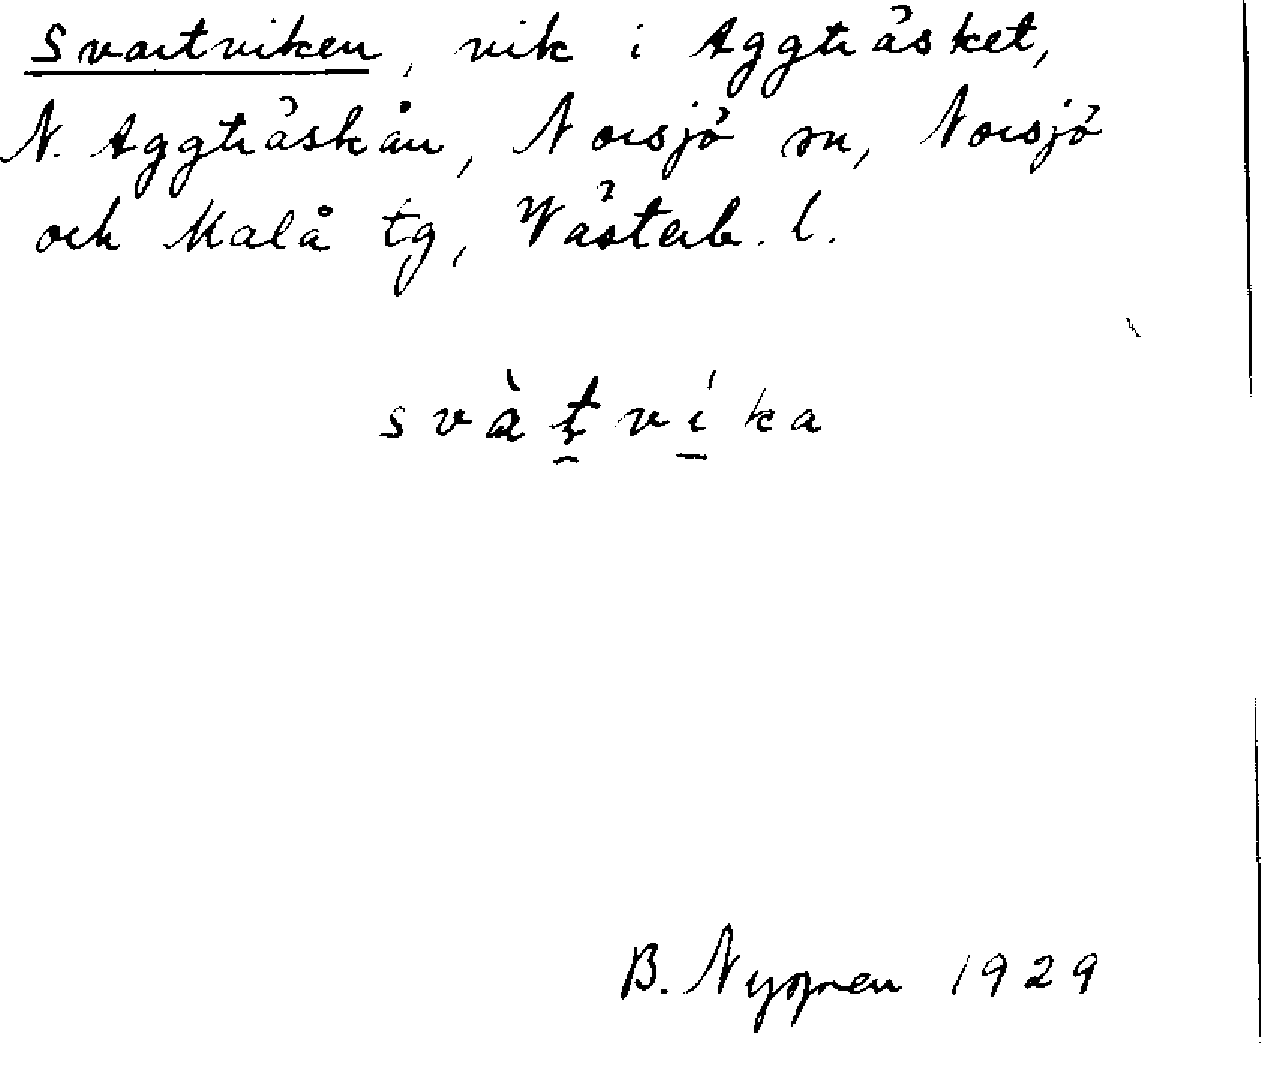 Svartviken, vik i Aggträsket,
N. Aggträskån, Norsjö sn, Norsjö
och Malå tg, Västerb. l.
svàt̤ví̱ka
B. Nygren 1929